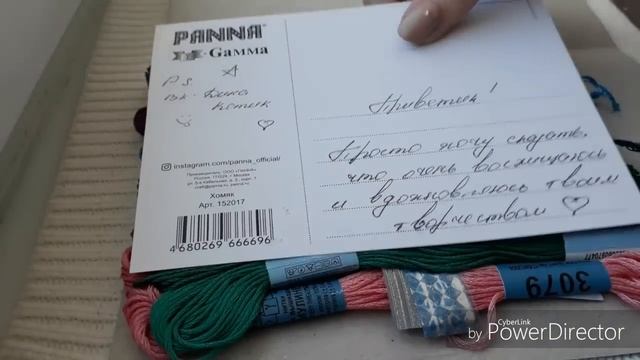 PANNA®
Gamma
P.S.
вк - Дика
Котик
instagram.com/panna_official/
Хомяк
Арт. 152017
4 680269 666696
Приветик!
Просто хочу сказать,
что очень восхищаюсь
и вдохновляюсь твоим
творчеством
3079
CyberLink
by PowerDirector